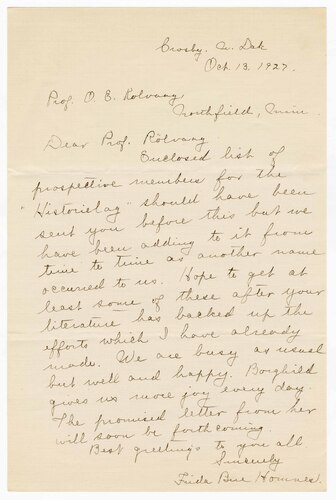 Crosby, N. Dak
Oct. 13, 1927.
Prof. O. E. Rolvaag,
Northfield, Minn
Dear Prof. Rolvaag
Enclosed list of
prospective members for the
"Historielag" should have been
sent you before this but we
have been adding to it from
time to time as another name
occurred to us. Hope to get at
least some of these after your
literature has backed up the
efforts which I have already
made. We are busy as usual
but well and happy. Borghild
gives us more joy every day.
The promised letter from her
will soon be forthcoming.
Best greetings to you all
Sincerely
Frida Bue Homnes.